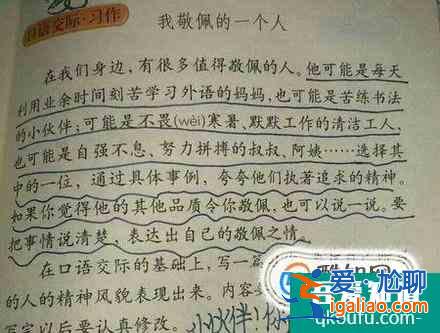 口语交际·习作
我敬佩的一个人
在我们身边，有很多值得敬佩的人。他可能是每天
利用业余时间刻苦学习外语的妈妈，也可能是苦练书法
的小伙伴；可能是不畏(wèi)寒暑、默默工作的清洁工人，
也可能是自强不息、努力拼搏的叔叔、阿姨……选择其
中的一位，通过具体事例，夸夸他们执著追求的精神。
如果你觉得他的其他品质令你敬佩，也可以说一说。要
把事情说清楚，表达出自己的敬佩之情。
在口语交际的基础上，写一篇
的人的精神风貌表现出来。内容
写完以后要认真修改。小伙伴！你
爱尬聊
igaliao.com